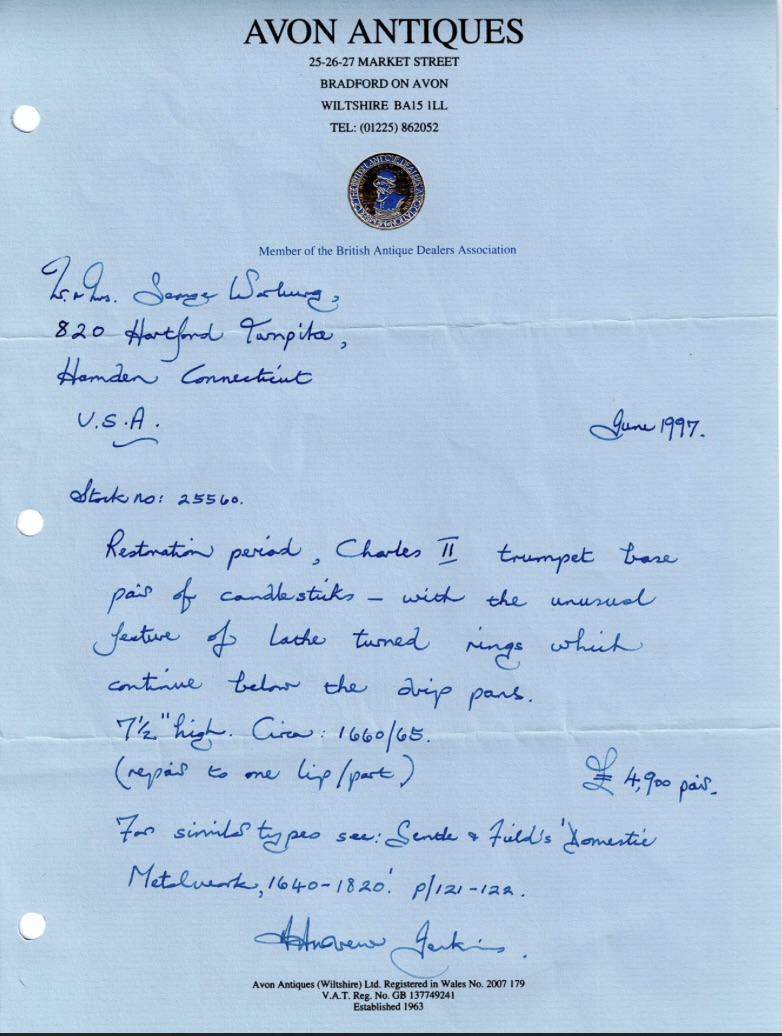 AVON ANTIQUES
25-26-27 MARKET STREET
BRADFORD ON AVON
WILTSHIRE BA15 1LL
TEL: (01225) 862052
Member of the British Antique Dealers Association
Mr. & Mrs. George Warburg,
820 Hartford Turnpike,
Hamden Connecticut
U.S.A.
June 1997.
Stock no: 25560.
Restoration period, Charles II trumpet base
pair of candlesticks – with the unusual
feature of lathe turned rings which
continue below the drip pans.
7½" high. Circa: 1660/65.
(repair to one lip/part)
£ 4,900 pair.
For similar types see: Gentle & Field's 'Domestic
Metalwork, 1640-1820'. p/121-122.
Andrew Jenkins.
Avon Antiques (Wiltshire) Ltd. Registered in Wales No. 2007 179
V.A.T. Reg. No. GB 137749241
Established 1963